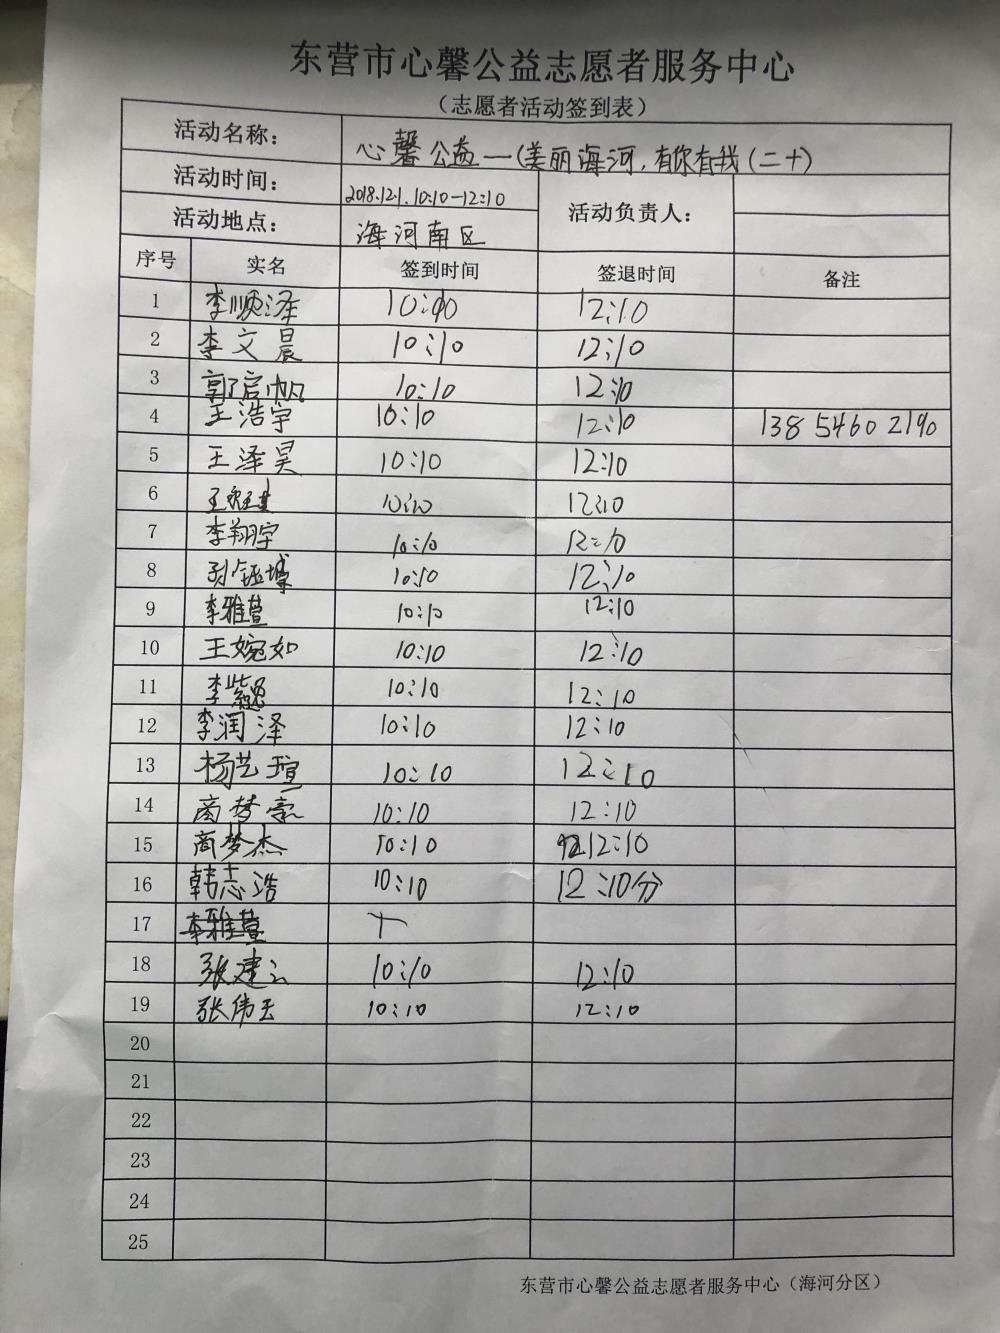 东营市心馨公益志愿者服务中心
（志愿者活动签到表）
活动名称： 心馨公益—(美丽海河，有你有我(二十)
活动时间： 2018.12.1. 10:10-12:10 活动负责人：
活动地点： 海河南区
序号 实名 签到时间 签退时间 备注
1 李顺泽 10:10 12:10
2 李文晨 10:10 12:10
3 郭启帆 10:10 12:10
4 王浩宇 10:10 12:10 138 5460 2190
5 王泽昊 10:10 12:10
6 10:10 12:10
7 李翔宇 10:10 12:10
8 10:10 12:10
9 李雅萱 10:10 12:10
10 王婉如 10:10 12:10
11 李紫 10:10 12:10
12 李润泽 10:10 12:10
13 杨艺瑄 10:10 12:10
14 商梦 10:10 12:10
15 商梦杰 10:10 12:10
16 韩志浩 10:10 12:10分
17 李雅萱
18 张建 10:10 12:10
19 张伟玉 10:10 12:10
20
21
22
23
24
25
东营市心馨公益志愿者服务中心（海河分区）